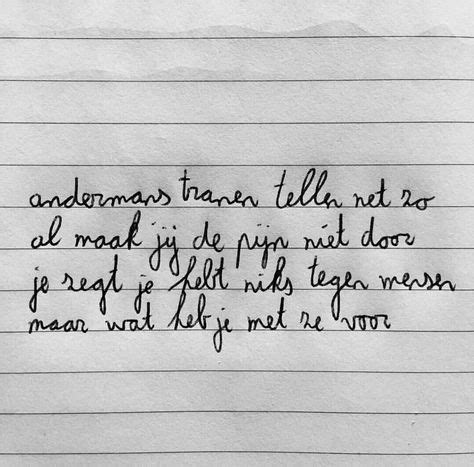 andermans tranen tellen net zo
al maak jij de pijn niet door
je zegt je hebt niks tegen mensen
maar wat heb je met ze voor